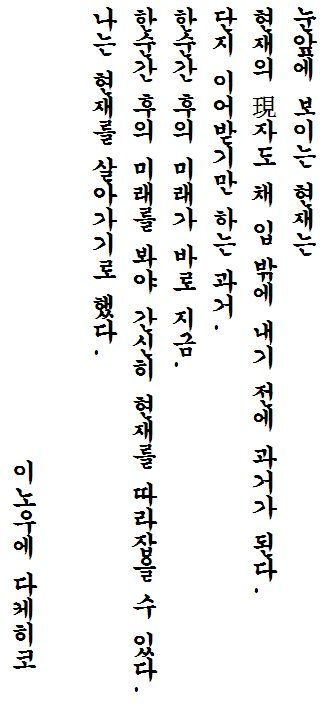 눈앞에 보이는 현재는
현재의 現자도 채 입 밖에 내기 전에 과거가 된다.
단지 이어받기만 하는 과거.
한순간 후의 미래가 바로 지금.
한순간 후의 미래를 봐야 간신히 현재를 따라잡을 수 있다.
나는 현재를 살아가기로 했다.
이노우에 다케히코